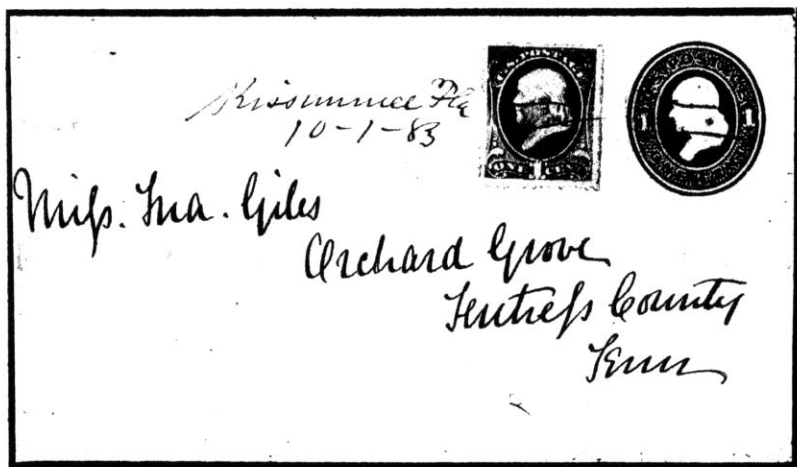 Kissimmee Fla
10-1-83
U.S. POSTAGE
ONE 1 CENT
1 1
Miss. Ina. Giles
Orchard Grove
Fentress County
Tenn